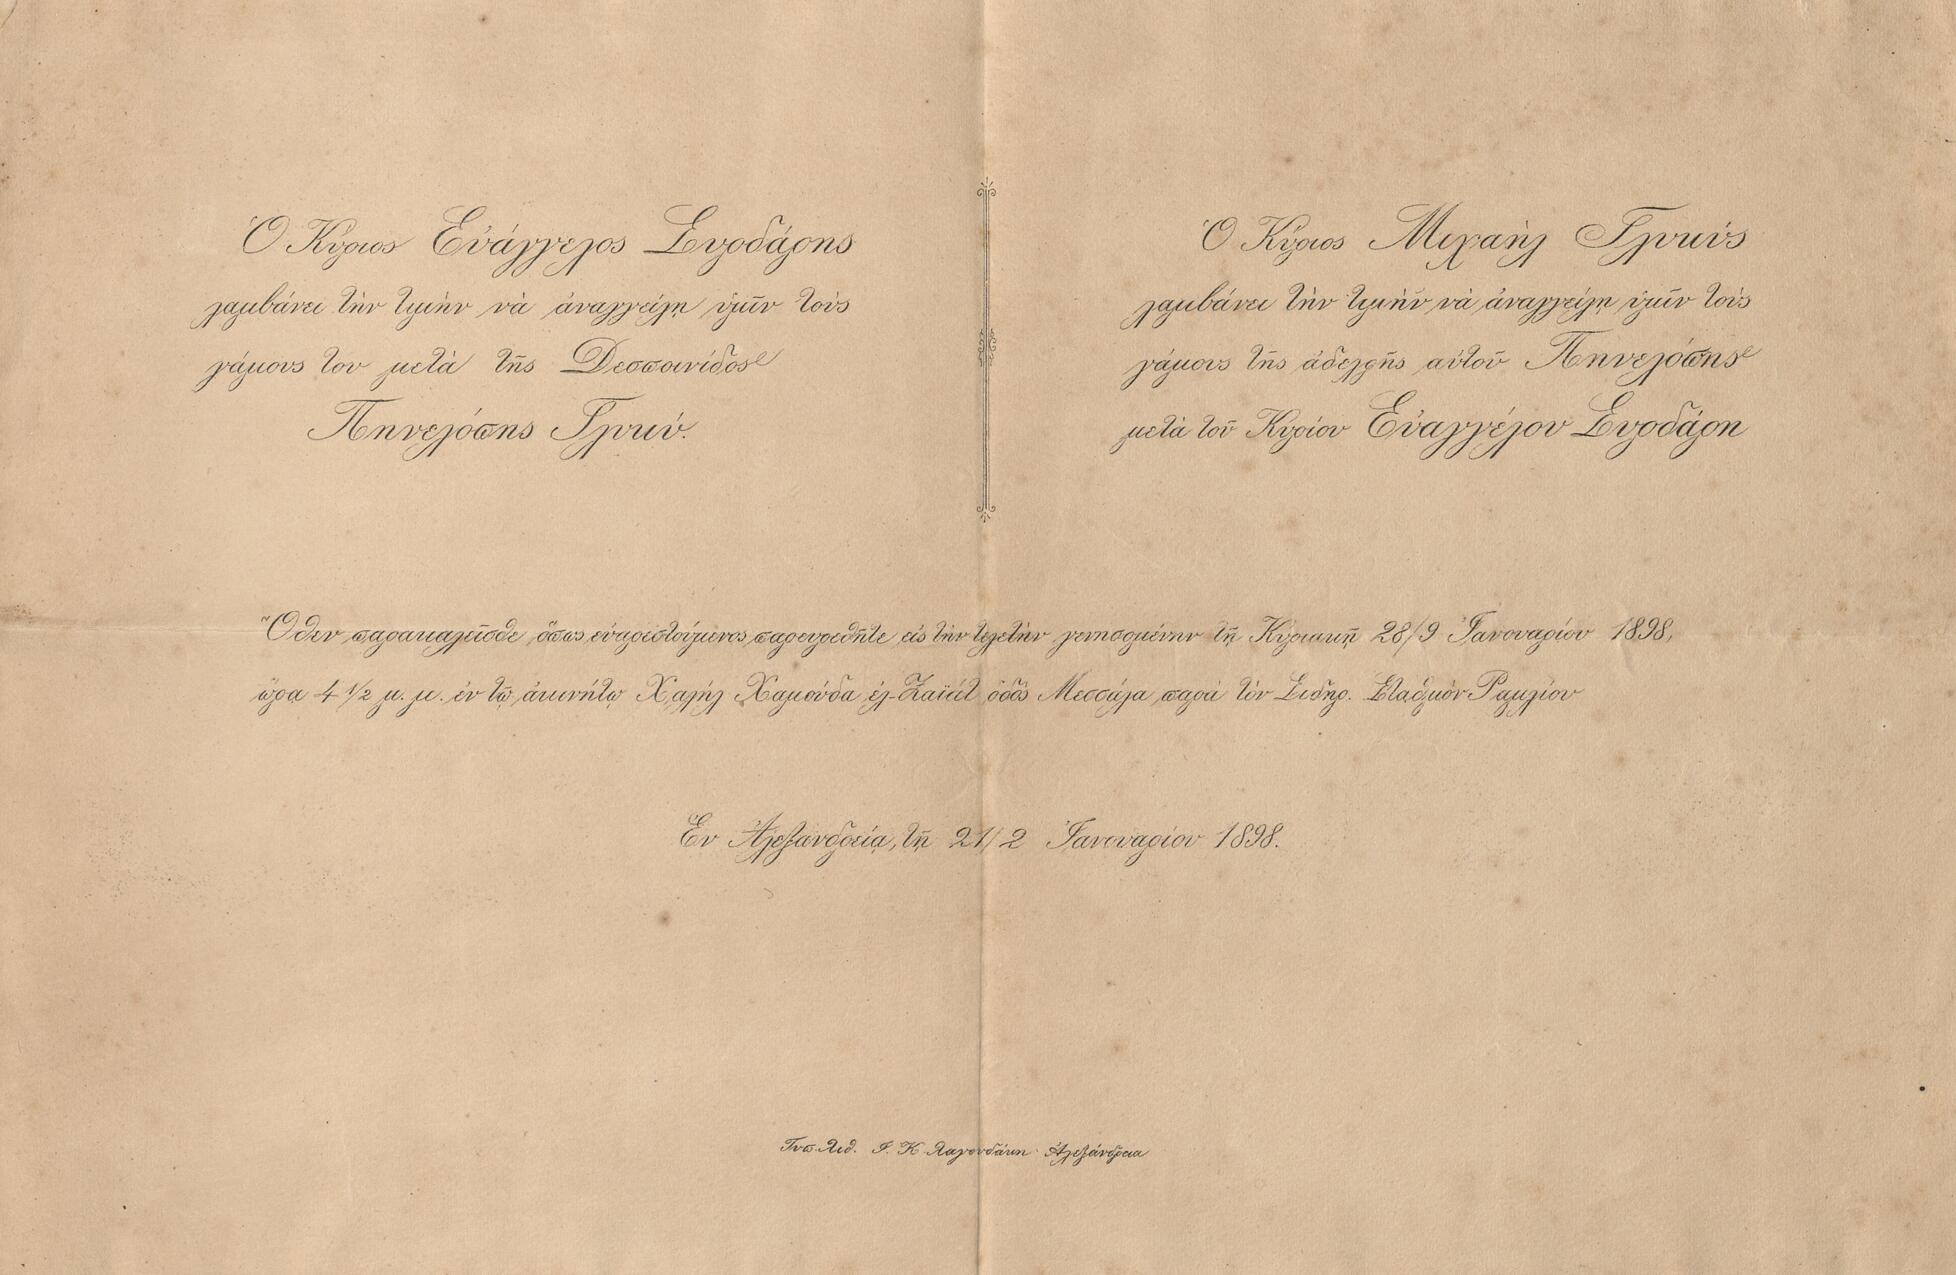 Ὁ Κύριος Εὐάγγελος Ξυλοδάρης
λαμβάνει τὴν τιμὴν νὰ ἀναγγείλῃ ὑμῖν τοὺς
γάμους του μετὰ τῆς Δεσποινίδος
Πηνελόπης Γλυκύ.
Ὁ Κύριος Μιχαὴλ Γλυκύς
λαμβάνει τὴν τιμὴν νὰ ἀναγγείλῃ ὑμῖν τοὺς
γάμους τῆς ἀδελφῆς αὐτοῦ Πηνελόπης
μετὰ τοῦ Κυρίου Εὐαγγέλου
Ὅθεν παρακαλεῖσθε ὅπως εὐαρεστούμενος παρευρεθῆτε εἰς τὴν τελετὴν γενησομένην τῇ Κυριακῇ 28/9 Ἰανουαρίου 1898,
ὥρα 4 1/2 μ. μ. ἐν τῷ ἀκινήτῳ Χαλὴλ Χαμούδα ἐλ-Ζαϊὰτ ὁδὸς Μεσσάλα παρὰ τὸν Σιδηρ. Σταθμὸν Ραμλίου
Ἐν Ἀλεξανδρείᾳ, τῇ 21/2 Ἰανουαρίου 1898.
Τυπ. Λιθ. Ι. Κ. Λαγουδάκη Ἀλεξάνδρεια